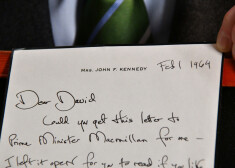 MRS. JOHN F. KENNEDY
Feb 1 1964
Dear David
Could you get this letter to
Prime Minister Macmillan for me —
I left it open for you to read if you like